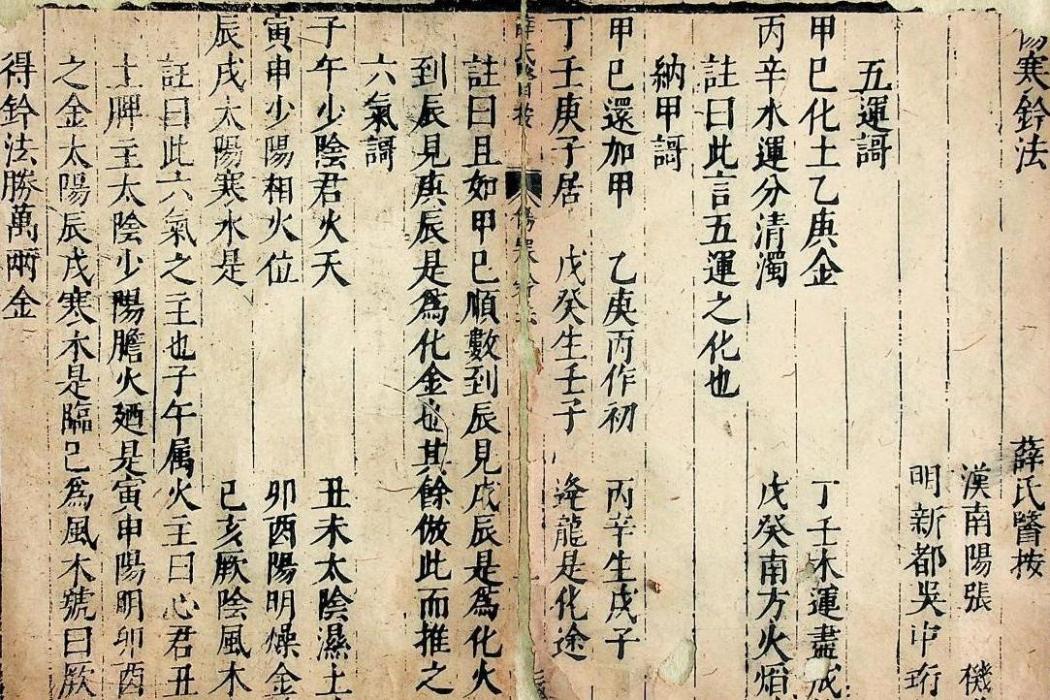 傷寒鈐法　薛氏醫按
漢南陽張　機
明新都吳中珩
五運謌
甲巳化土乙庚金　丁壬木運盡成
丙辛水運分清濁　戊癸南方火焰
註曰此言五運之化也
納甲謌
甲巳還加甲　乙庚丙作初　丙辛生戊子
丁壬庚子居　戊癸生壬子　逄龍是化途
薛氏醫按　傷寒鈐法
註曰且如甲巳順數到辰見戊辰是為化火
到辰見庚辰是爲化金也其餘倣此而推之
六氣謌
子午少陰君火天　丑未太陰濕土
寅申少陽相火位　卯酉陽明燥金
辰戌太陽寒水是　巳亥厥陰風木
註曰此六氣之主也子午屬火主曰心君丑
土脾主太陰少陽膽火廼是寅申陽明卯酉
之金太陽辰戌寒水是臨巳爲風木號曰厥
得鈐法勝萬兩金